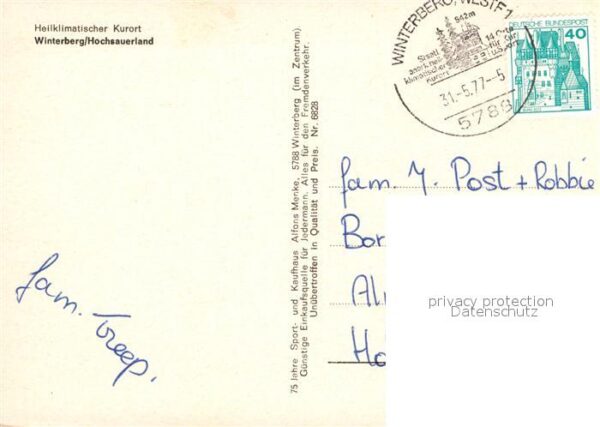 Heilklimatischer Kurort
Winterberg/Hochsauerland
75 Jahre Sport- und Kaufhaus Alfons Menke, 5788 Winterberg (im Zentrum)
Günstige Einkaufsquelle für Jedermann. Alles für den Fremdenverkehr.
Unübertroffen in Qualität und Preis. Nr. 6828
WINTERBERG, WESTF 1
842m
Staatl
anerk. heil-
klimatischer
Kurort
14 Orte
31.-5.77--5
5788
DEUTSCHE BUNDESPOST
40
fam. Y. Post + Robbie
Bor
Al
Ho
privacy protection
Datenschutz
fam. Treep.